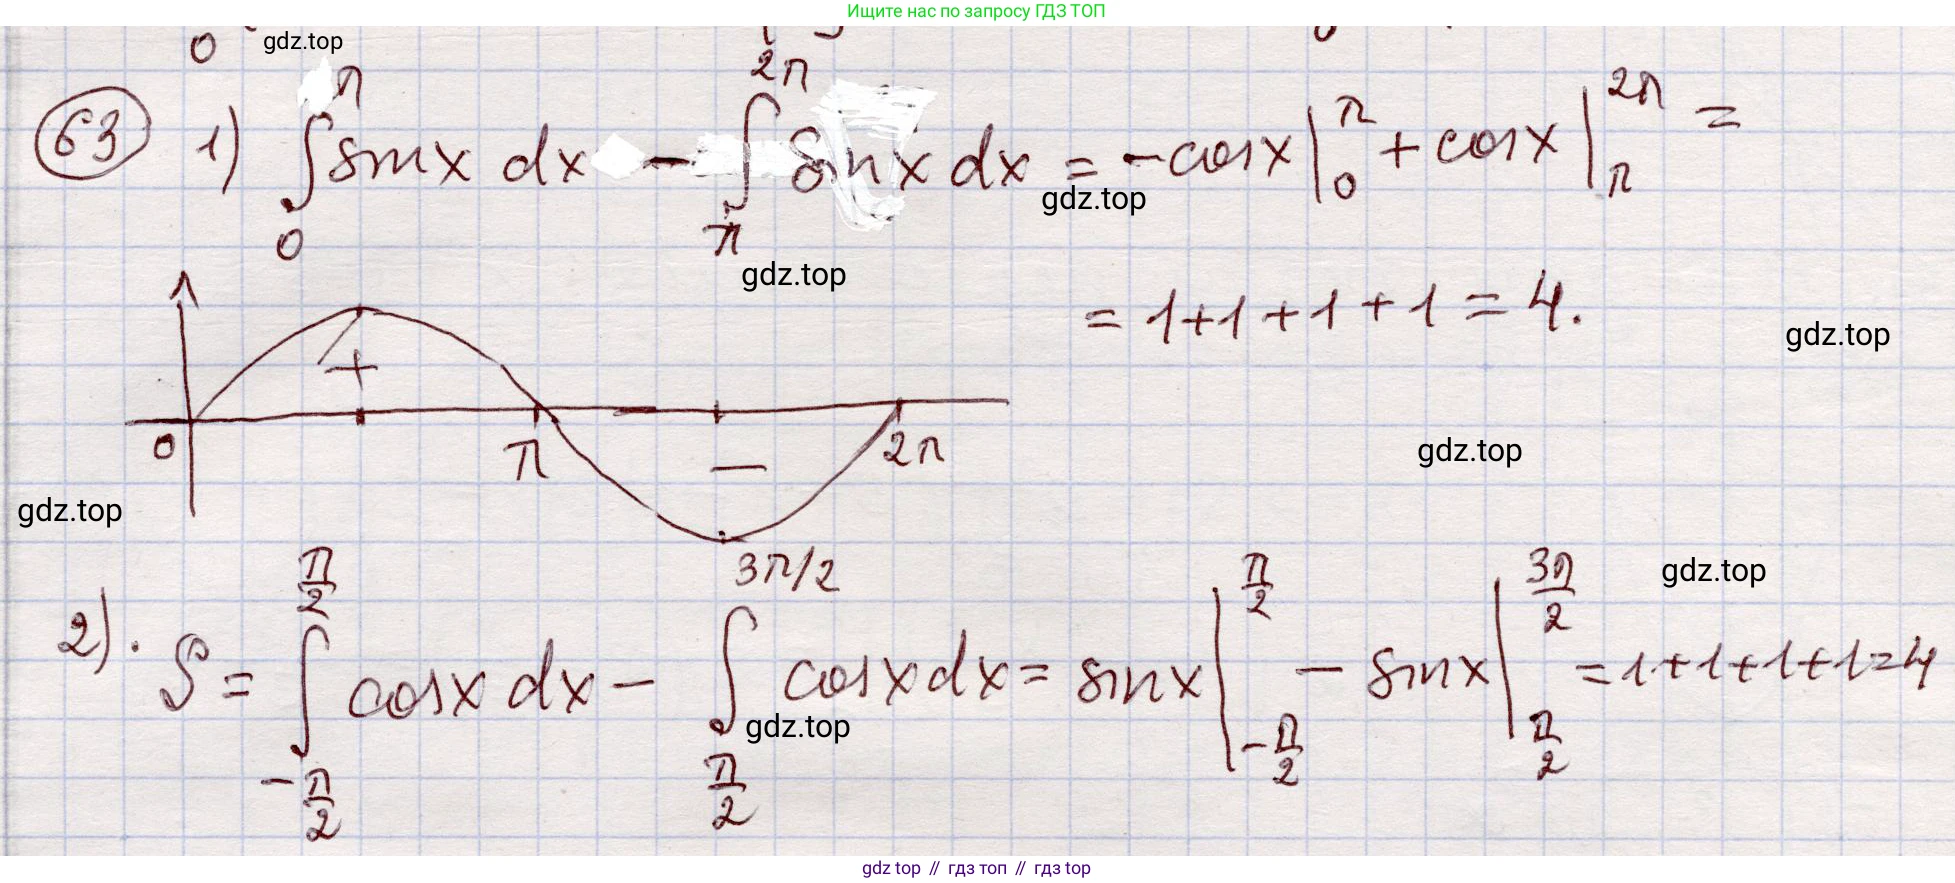 Ищите нас по запросу ГДЗ ТОП
0 gdz.top
63 1) ∫₀^π sin x dx − ∫_π^{2π} sin x dx = −cos x |₀^π + cos x |_π^{2π} =
gdz.top
gdz.top
= 1+1+1+1 = 4.
gdz.top
+
0 π − 2π
gdz.top
gdz.top
2). S = ∫_{−π/2}^{π/2} cos x dx − ∫_{π/2}^{3π/2} cos x dx = sin x |_{−π/2}^{π/2} − sin x |_{π/2}^{3π/2} = 1+1+1+1=4
gdz.top
gdz.top
gdz top // гдз топ // гдз top